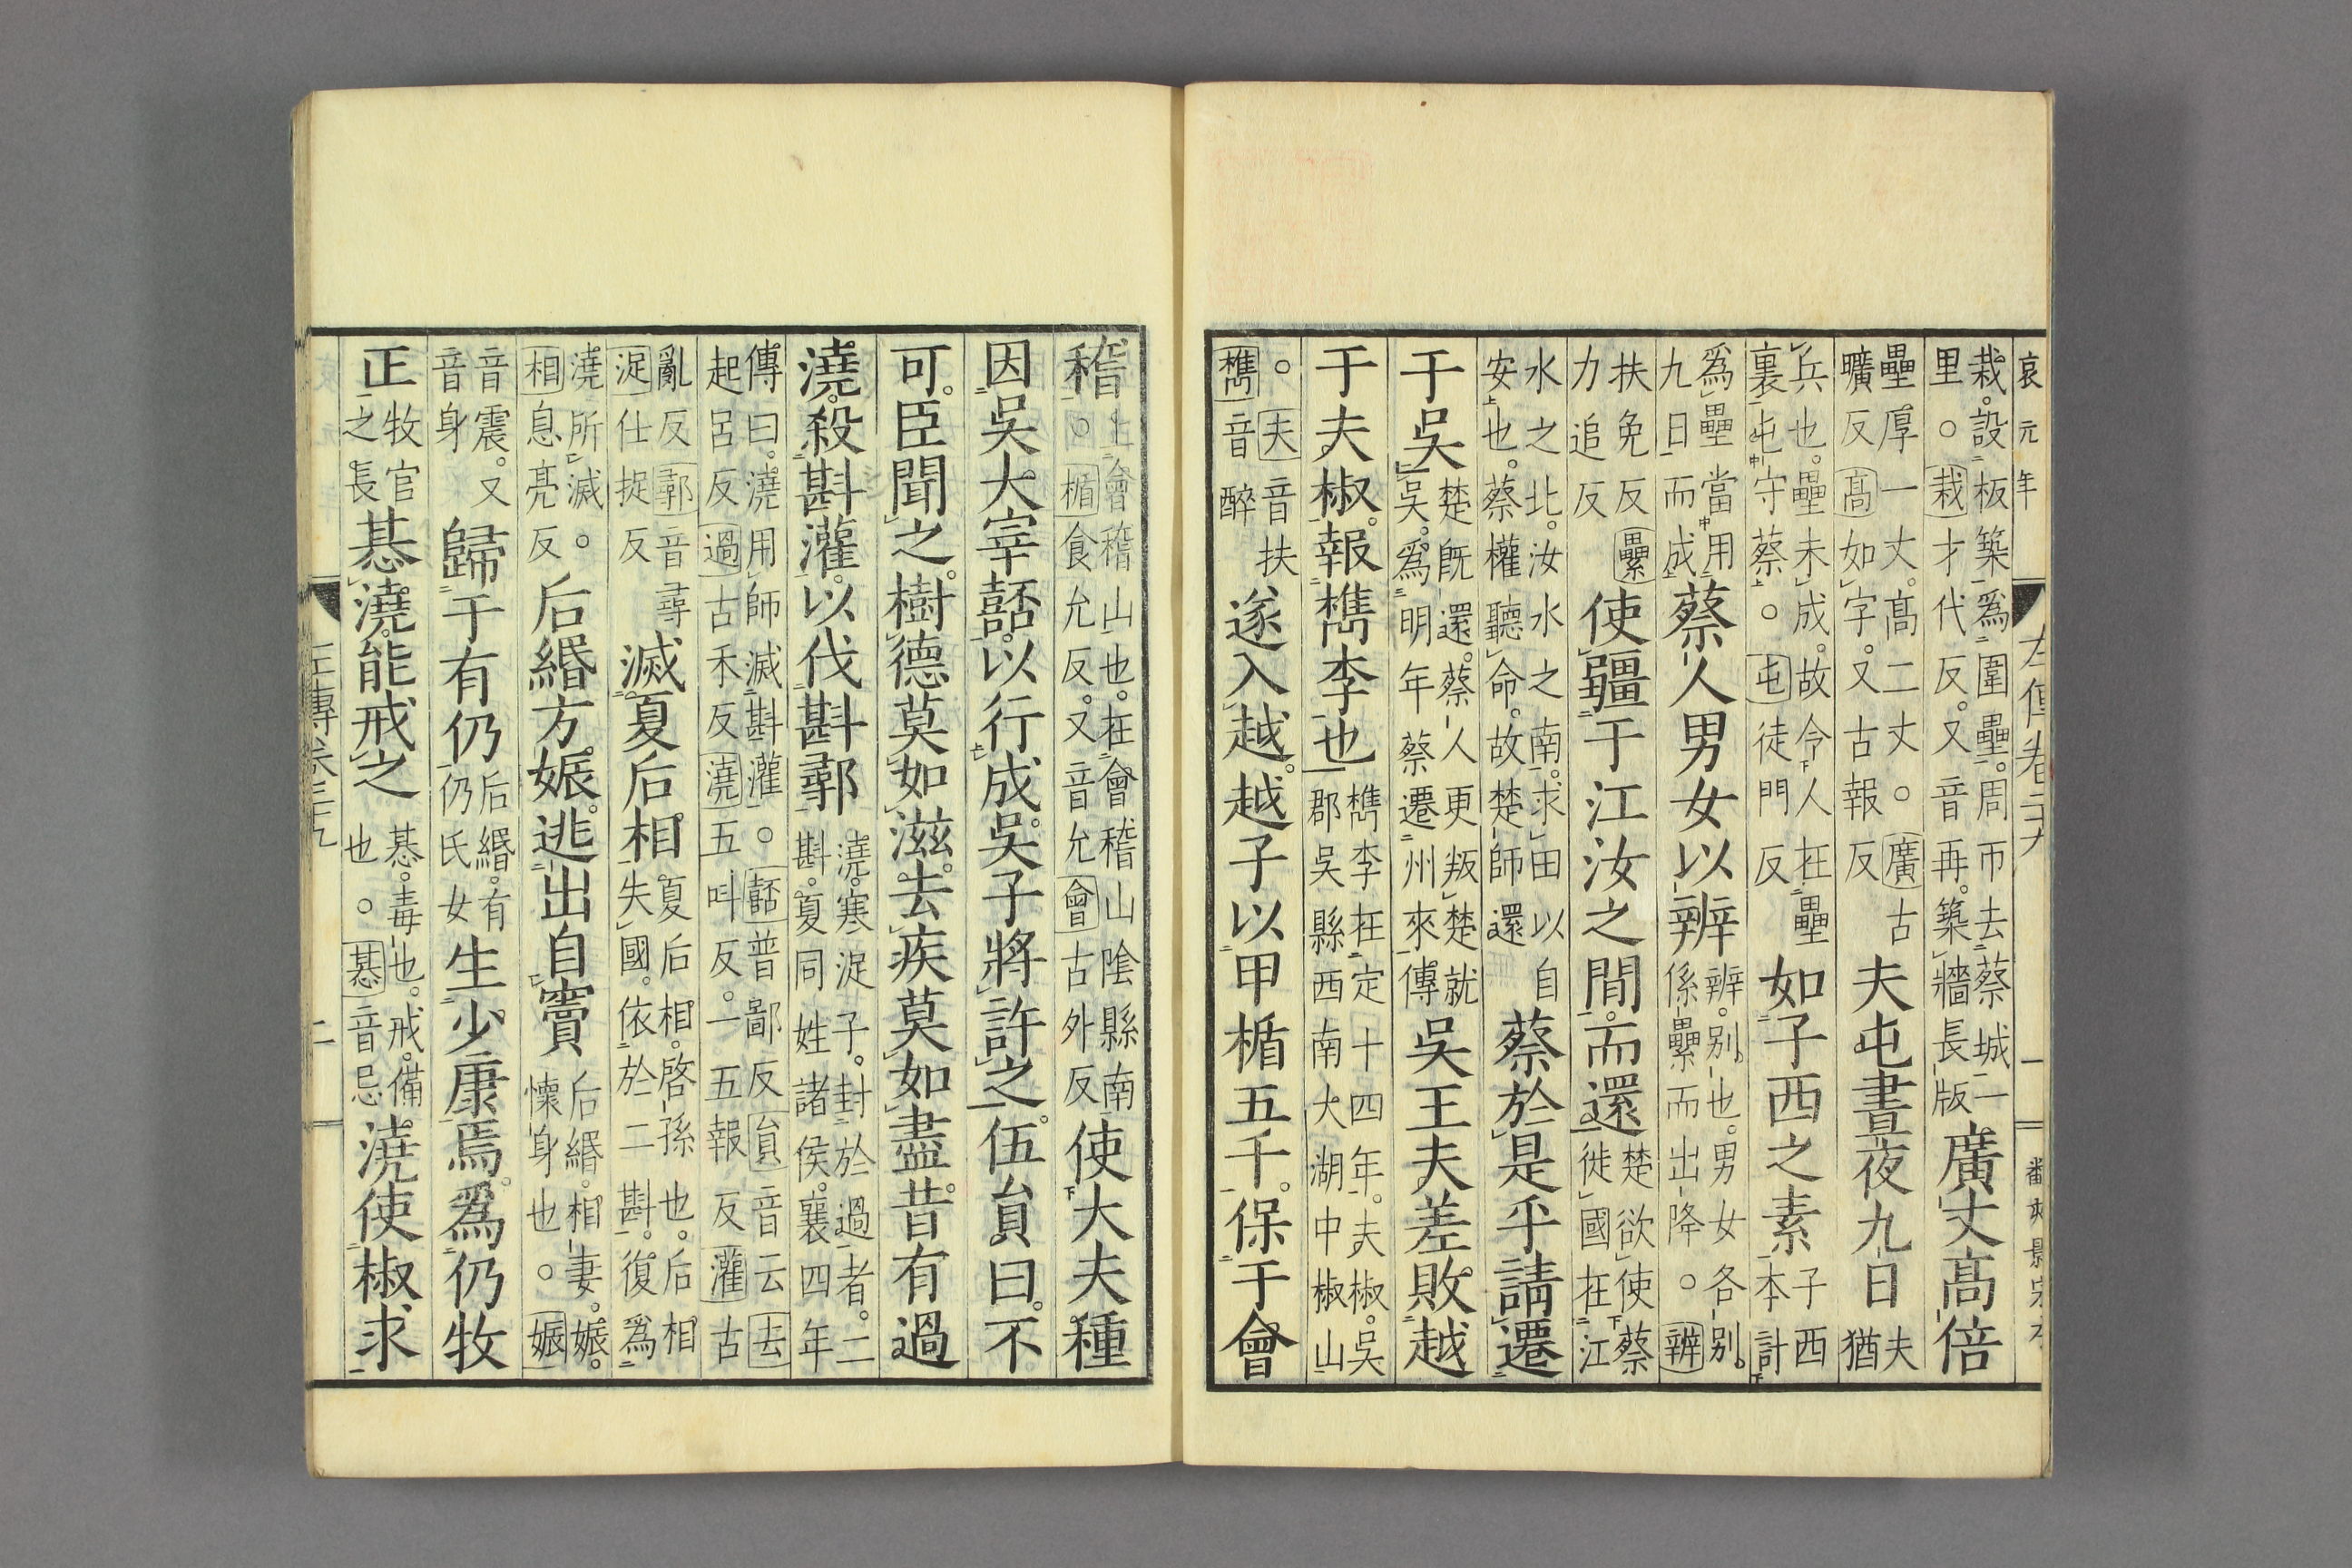 哀元年 左傳卷二十九 一
栽。設板築爲圍壘。周帀去蔡城一里。○栽才代反。又音再。築牆長版廣丈高倍
壘厚一丈。高二丈。○廣古曠反高如字。又古報反夫屯晝夜九日夫猶
兵也。壘未成。故令人在壘裏屯守蔡。○屯徒門反如子西之素子西本計
爲壘當用九日而成蔡人男女以辨辨。别也。男女各别。係纍而出降。○辨
扶免反纍力追反使疆于江汝之間。而還楚欲使蔡徙國在江
水之北。汝水之南。求田以自安也。蔡權聽命。故楚師還蔡於是乎請遷
于吳楚旣還。蔡人更叛楚就吳。爲明年蔡遷州來傳吳王夫差敗越
于夫椒。報檇李也檇李在定十四年。夫椒。吳郡吳縣西南大湖中椒山
○夫音扶檇音醉遂入越。越子以甲楯五千。保于會
稽上會稽山也。在會稽山陰縣南○楯食允反。又音允會古外反使大夫種
因吳大宰嚭。以行成。吳子將許之。伍員曰。不
可。臣聞之。樹德莫如滋。去疾莫如盡。昔有過
澆。殺斟灌。以伐斟鄩澆。寒浞子。封於過者。二斟。夏同姓諸侯。襄四年
傳曰。澆用師滅斟灌。○嚭普鄙反員音云去起呂反過古禾反澆五叫反。一五報反灌古
亂反鄩音尋浞仕捉反滅夏后相夏后相。啓孫也。后相失國。依於二斟。復爲
澆所滅。○相息亮反后緡方娠。逃出自竇后緡。相妻。娠。懷身也。○娠
音震。又音身歸于有仍后緡。有仍氏女生少康焉。爲仍牧
正牧官之長惎澆。能戒之惎。毒也。戒。備也。○惎音忌澆使椒求
左傳卷二十九 二